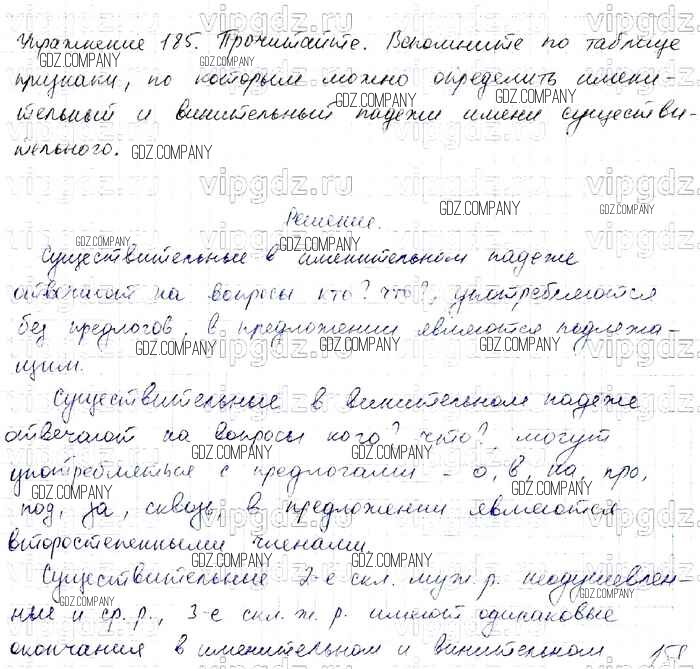 Упражнение 185. Прочитайте. Вспомните по таблице
признаки, по которым можно определить имени-
тельный и винительный падежи имени существи-
тельного.
Решение.
Существительные в именительном падеже
отвечают на вопросы кто? что?, употребляются
без предлогов, в предложении являются подлежа-
щим.
Существительные в винительном падеже
отвечают на вопросы кого? что? могут
употребляться с предлогами - о, в, на, про,
под, за, сквозь, в предложении являются
второстепенными членами.
Существительные 2-е скл. муж. р. неодушевлен-
ные и ср. р., 3-е скл. ж. р. имеют одинаковые
окончания в именительном и винительном
vipgdz.ru
GDZ.COMPANY